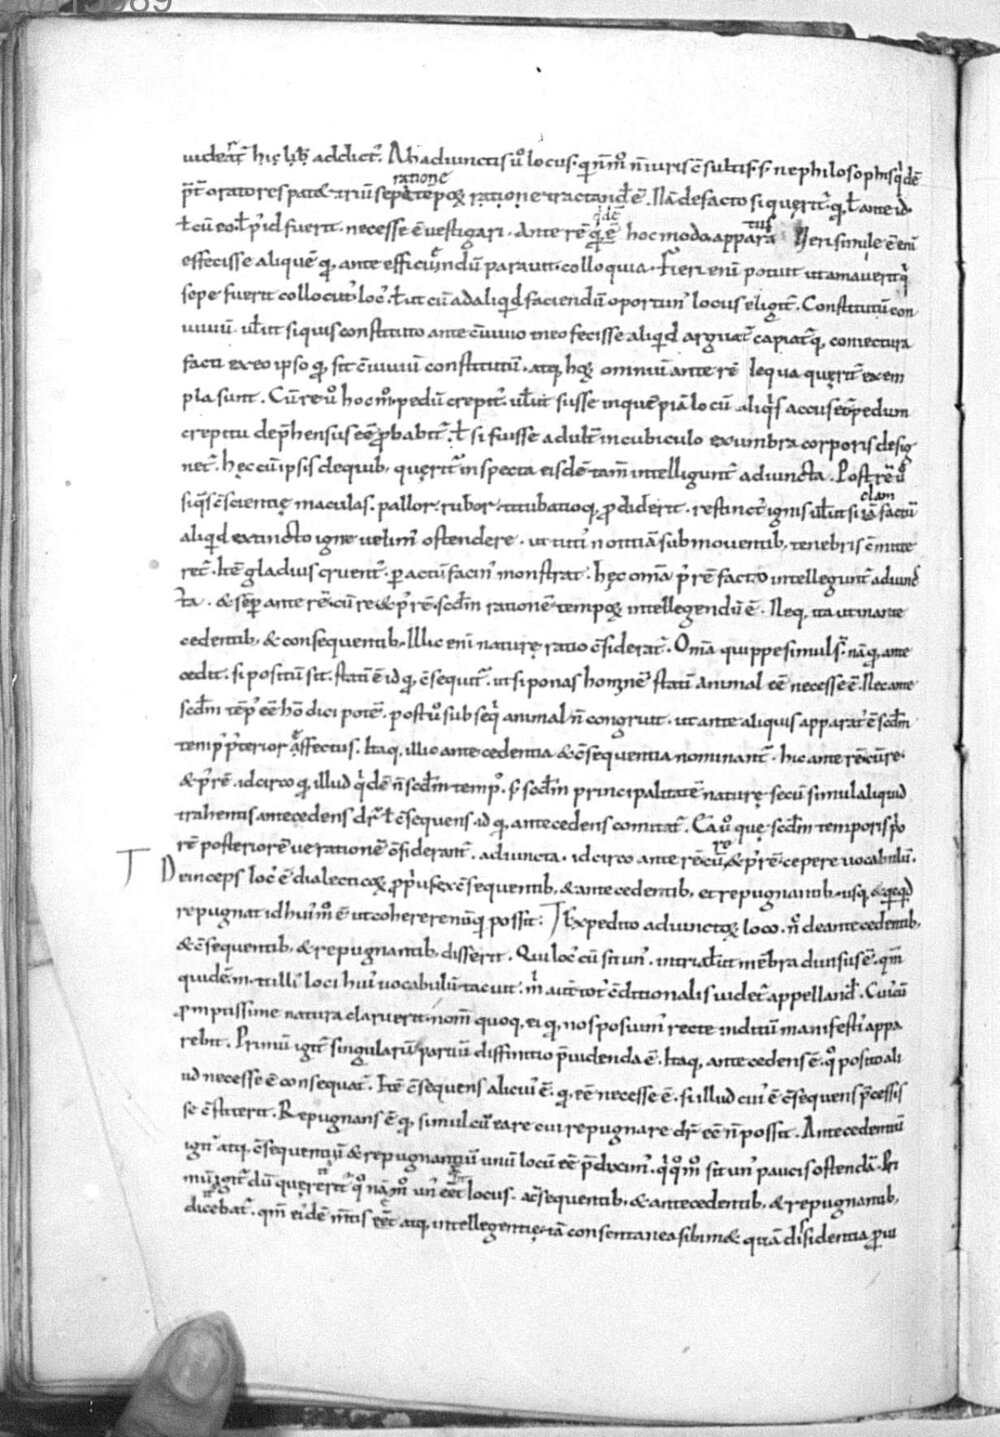 uidear̃ his lib; addict᷒. Ab adiunctis ů locus. qi n̄ m̊ n̄ iuris c̄sultis. s; ne philosophis q̇dē
p̄t oratores patet. triū sepe tēpoꝝ ratione tractandꝰ ē. Nā de facto si querit̃ qd̛ ł ante id.
ratione
ł cū eo. ł p᷒ id fuerit. necesse ē uestigari. Ante rē q̇dē hoc modo apparatus Veri simile ē eni
effecisse aliquē qd̛, ante efficiendū parauit. colloquia. Fieri enī potuit ut amauerit q̇
sepe fuerit collocut᷒ loc᷒. ł ut cū ad aliqid faciendū oportun᷒ locus eligit̃. Constitutū con
uiuiū. uł ut si quis constituto ante c̄uiuio in eo fecisse aliqid arguat̃ capiat̃q; coniectura
facti ex eo ipso qd̛, sit c̄uiuiū constitutū. atq; hoꝝ omniū ante rē in qua querit̃ exem
pla sunt. Cū re ů hoc m̊. pedū crepit᷒. uł ut fuisse in quēpiā locū aliq̇s accuset᷒ pedum
crepitu dep̄hensus eē pbabit̃. ł si fuisse adult̃ in cubiculo ex umbra corporis desig
net̃. hęc cū ipsis de quib; querit̃ inspecta eisdē tam̄ intelligunt̃ adiuncta. Postrē ů
siq̇s c̄scientię maculas. pallor. rubor. titubatioq; p̱diderit. restinct᷒ ignis uł ut si iā factū
clam
aliqid extincto igne uelim᷒ ostendere. ut tuti᷒ notitiā submouentib; tenebris c̄mitte
ret̃. Itē gladius cruent᷒. p̱actū facin᷒ monstrat. hęc om̄a p᷒ rē facto intellegunt̃ adiunc
ta. & semp̱ ante rē. cū re & p᷒ rē. scd̄m rationē tempoꝝ intellegendū ē. Neq; ita ut in ante
cedentib; & consequentib;. Illic enī naturę ratio c̄siderat̃. Om̄a quippe simul st̃. nā qd̛, ante
cedit. si positū sit. statī ē id qd̛, c̄sequit̃. ut si ponas hominē statī animal eē necesse ē. Nec ante
scd̄m tēp᷒ eē hō dici potē. post ů subseq̇ animal n̄ congruit. ut ante aliquis apparat᷒ ē scd̄m
temp᷒ p᷒terior affectus. Itaq; illic antecedentia & c̄sequentia nominant̃. hic ante rē. cū re.
& p᷒ rē. idcirco qd̛, illud q̇dē n̄ scd̄m temp᷒. s; scd̄m principalitatē naturę. secū simul aliquid
trahentis antecedens dr̃. ł c̄sequens id qd̛, antecedens comitat̃. Ea ů que scd̄m temporis p̱o
rē posteriorē ue rationē c̄siderant̃. adiuncta. idcirco ante rē cū re & p᷒ rē. cepere uocabulū.
Deinceps loc᷒ ē dialecticoꝝ p̱pri᷒. ex c̄sequentib; & antecedentib; et repugnantib;. usq; & qd̛qd
repugnat id hui᷒ m̊ ē ut coherere nūq̃ possit. Expedito adiunctoꝝ loco. n̄c de antecedentib;
& c̄sequentib; & repugnantib; disserit. Qui loc᷒ cū sit un᷒. in tria uł ut mēbra diuisus ē. qm̄
quidē m. tulli᷒ loci hui᷒ uocabulū tacuit. m̊ aut̄ tot᷒ c̄ditionalis uidet̃ appelland᷒. Cui᷒ cū
p̱mptissime natura claruerit. nom̄ quoq; ei qd̛, nos posuim᷒ recte inditū manifesti᷒ appa
rebit. Primū igit̃ singularū partiū diffinitio p̄uidenda ē. Itaq; antecedens ē. q̊ posito ali
ud necesse ē consequat̃. Itē c̄sequens alicui᷒ ē. qd̛, eē necesse ē. si illud cui᷒ ē c̄sequens p̄cessis
se c̄stiterit. Repugnans ē qd̛, simul cū ea re cui repugnare dr̃ eē n̄ possit. Antecedentiū
igit̃ atq; c̄sequentiū & repugnantiū unū locū eē p̄dixim᷒. q̇ q̊m̊ sit un᷒ paucis ostendā. Pri
mū igit̃ dū quererēt̃ q̊ nā m̊ un᷒ eēt locus. a c̄sequentib; & antecedentib; & repugnantib;
dicebat̃. qm̄ ei᷒dē m̄tis eēt atq; intellegentię. tā consentanea sibimet quā dissidentia p̱ui